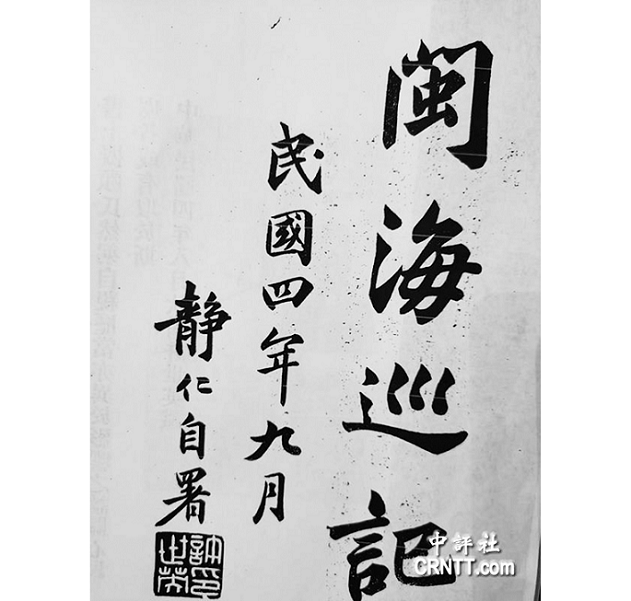 閩海巡記
民國四年九月
靜仁自署
許印
世英
中評社
CRNTT.com